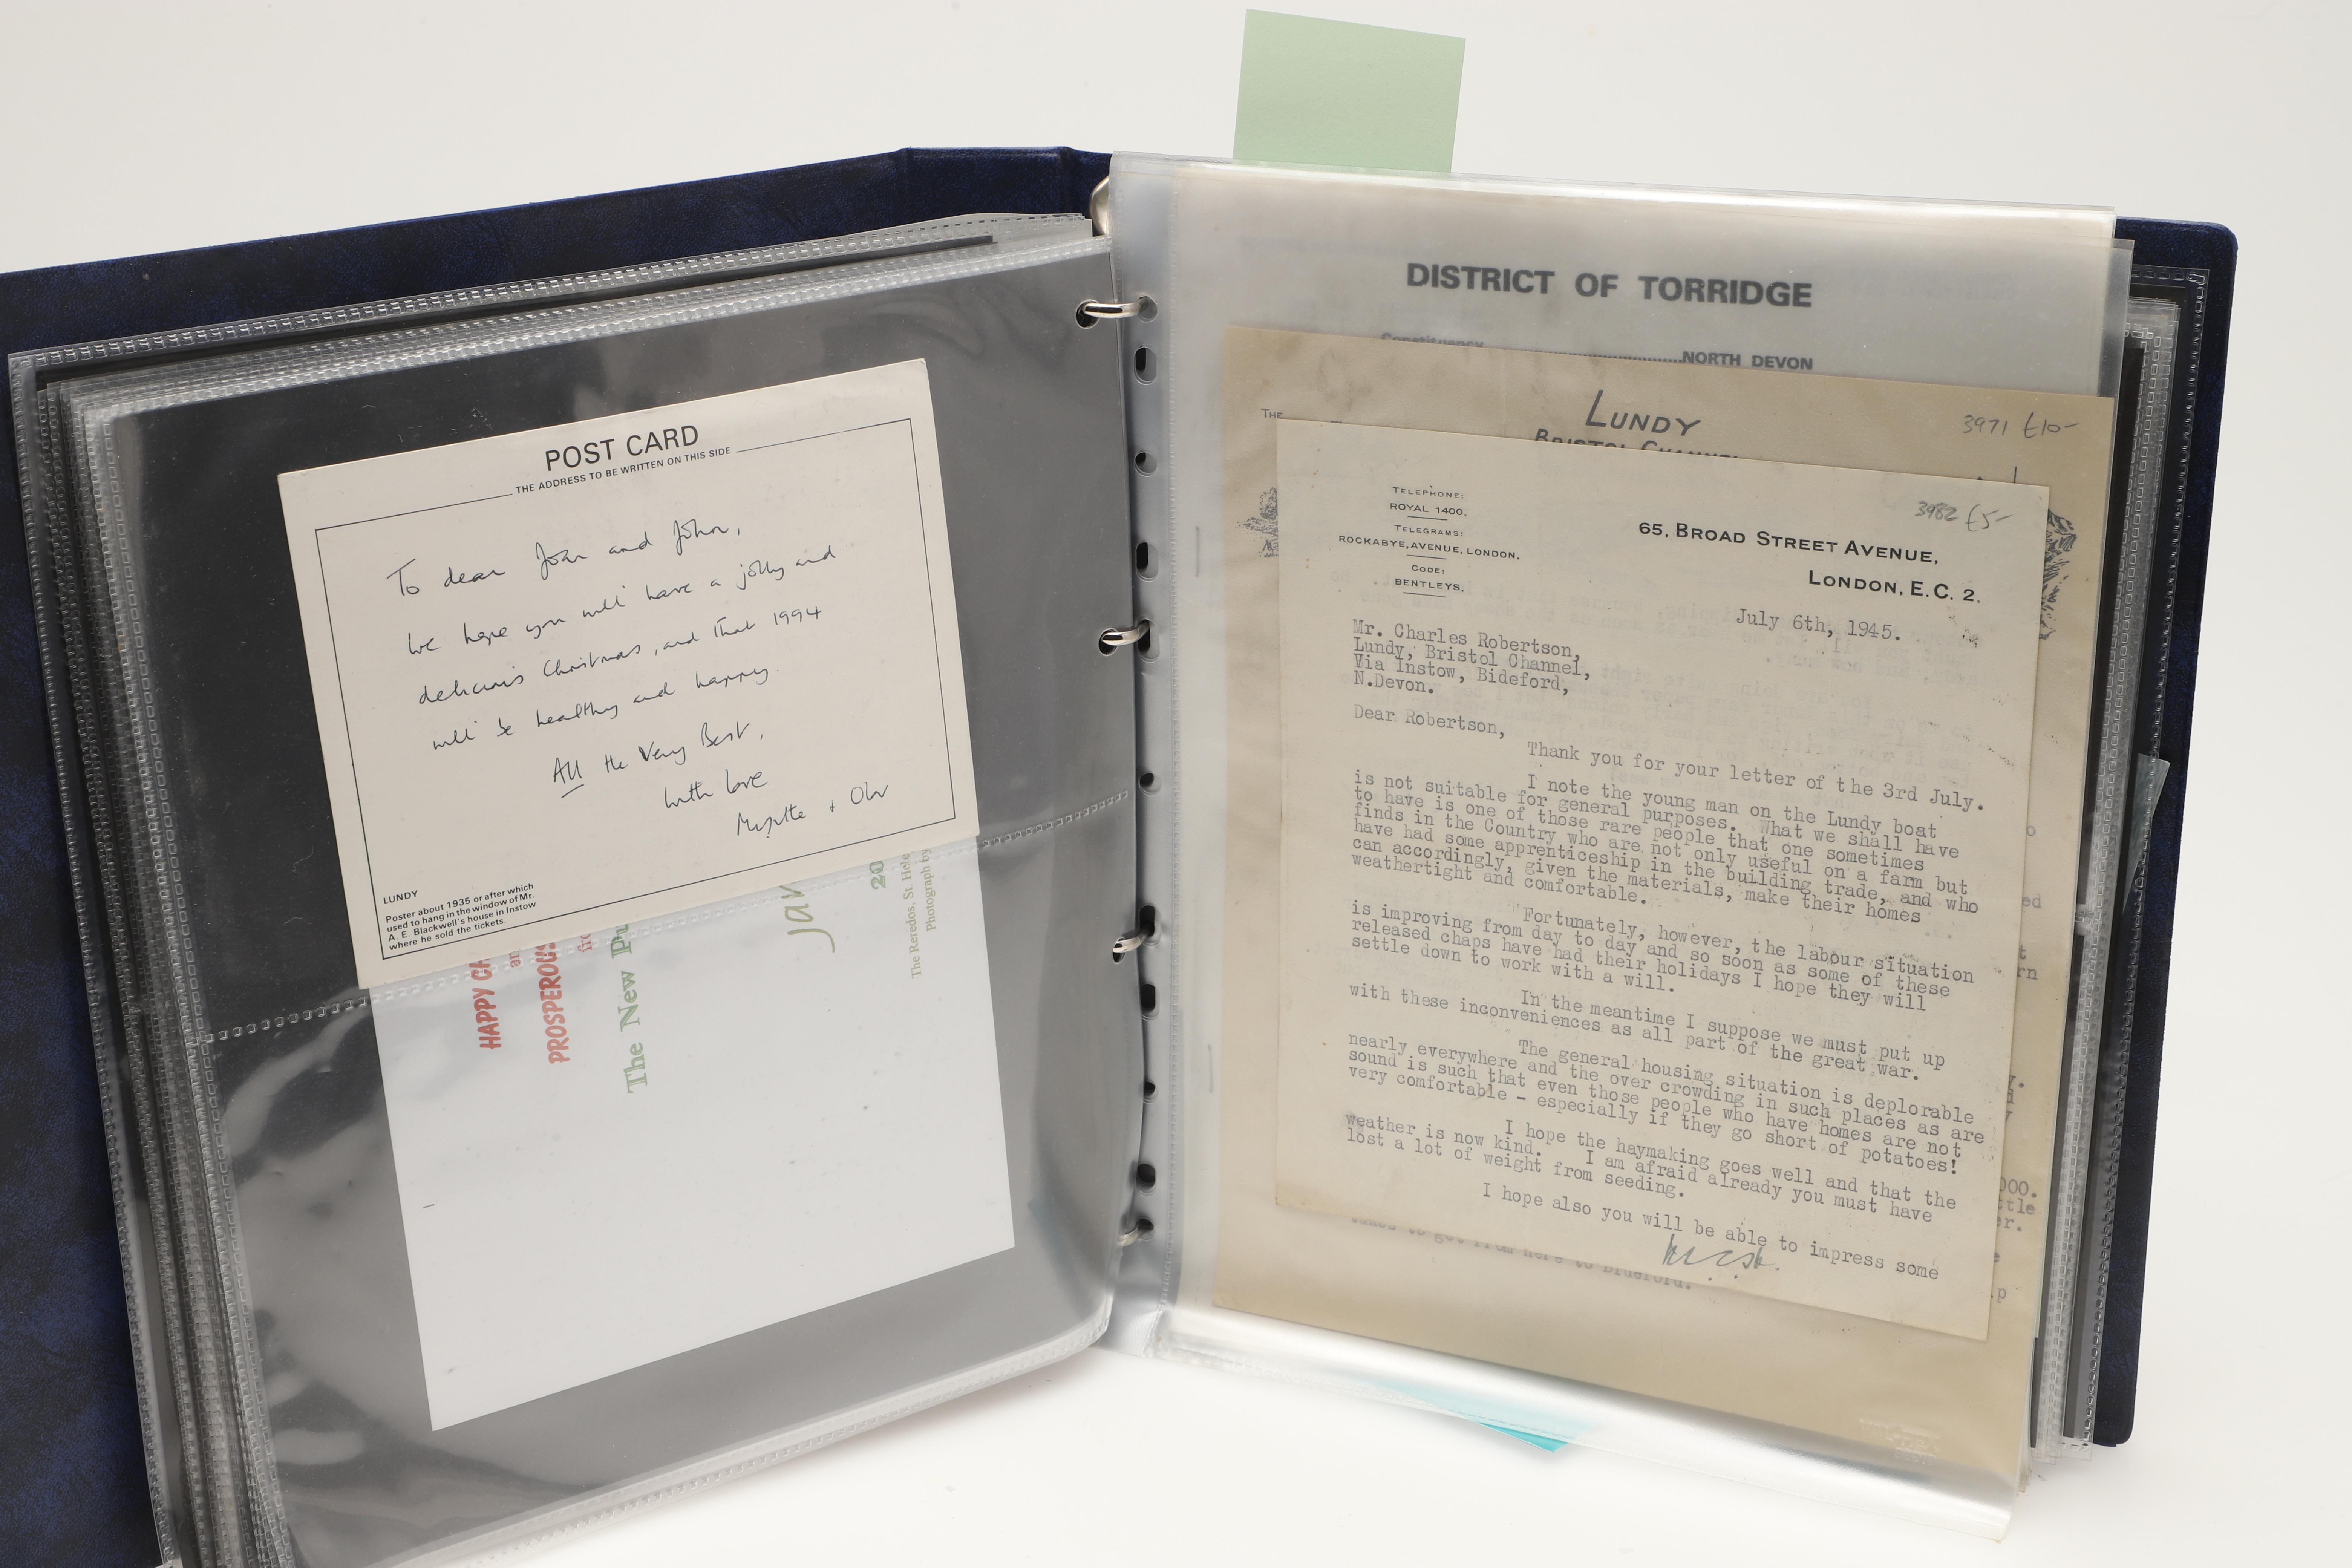 POST CARD
THE ADDRESS TO BE WRITTEN ON THIS SIDE
To dear Joan and John,
We hope you will have a jolly and
delicious Christmas, and that 1994
will be healthy and happy.
All the Very Best,
with love
LUNDY
Poster about 1935 or after which
used to hang in the window of Mr.
A. E. Blackwell's house in Instow
where he sold the tickets.
HAPPY
PROSPEROUS
The New
20
The Reredos, St.
Photograph by
DISTRICT OF TORRIDGE
Constituency NORTH DEVON
THE
LUNDY
BRISTOL CHANNEL
3971 £10-
TELEPHONE:
ROYAL 1400.
TELEGRAMS:
ROCKABYE, AVENUE, LONDON.
CODE:
BENTLEYS.
3982 £5-
65, BROAD STREET AVENUE,
LONDON, E.C. 2.
July 6th, 1945.
Mr. Charles Robertson,
Lundy, Bristol Channel,
Via Instow, Bideford,
N.Devon.
Dear Robertson,
Thank you for your letter of the 3rd July.
I note the young man on the Lundy boat
is not suitable for general purposes. What we shall have
to have is one of those rare people that one sometimes
finds in the Country who are not only useful on a farm but
have had some apprenticeship in the building trade, and who
can accordingly, given the materials, make their homes
weathertight and comfortable.
Fortunately, however, the labour situation
is improving from day to day and so soon as some of these
released chaps have had their holidays I hope they will
settle down to work with a will.
In the meantime I suppose we must put up
with these inconveniences as all part of the great war.
The general housing situation is deplorable
nearly everywhere and the over crowding in such places as are
sound is such that even those people who have homes are not
very comfortable - especially if they go short of potatoes!
I hope the haymaking goes well and that the
weather is now kind. I am afraid already you must have
lost a lot of weight from seeding.
I hope also you will be able to impress some
to get from here to Bideford.